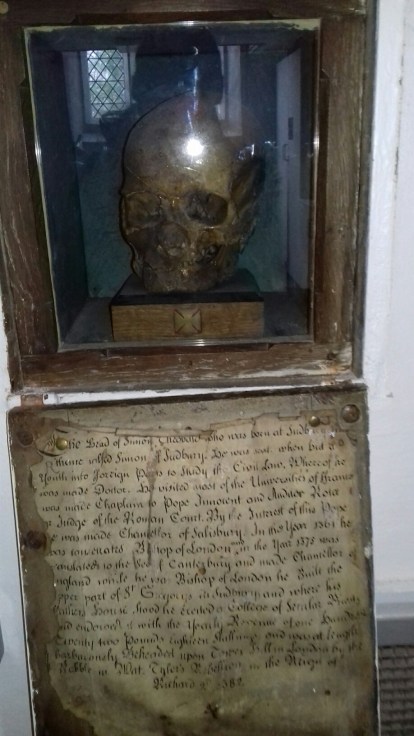 The Head of Simon Theobald who was born at Sudbury
thence called Simon of Sudbury. He was sent when but a
Youth into foreign Parts to Study the Civil Law, Whereof he
was made Doctor. He visited most of the Universities of France
was made Chaplain to Pope Innocent and Auditor Rota
or Judge of the Roman Court. By the Interest of this Pope
he was made Chancellor of Salisbury. In the Year 1361 he
was consecrated Bishop of London in the Year 1375 was
translated to the See of Canterbury and made Chancellor of
England while he was Bishop of London he Built the
upper part of St Gregorys in Sudbury and where his
Fathers House stood he erected a College of Secular Priests
and endowed it with the Yearly Revenue of one Hundred
Twenty two Pounds eighteen Shillings and was at length
barbarously Beheaded upon Tower Hill in London by the
Rabble in Wat Tylers Rebellion in the Reign of
Richard 382